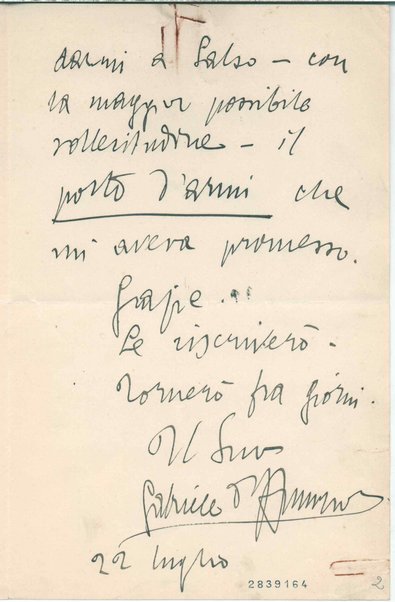 darmi a Salso – con
la maggior possibile
sollecitudine – il
porto d'armi che
mi aveva promesso.
Grazie...
Le riscriverò –
Tornerò fra giorni.
Il Suo
Gabriele d'Annunzio
22 luglio
2839164
2